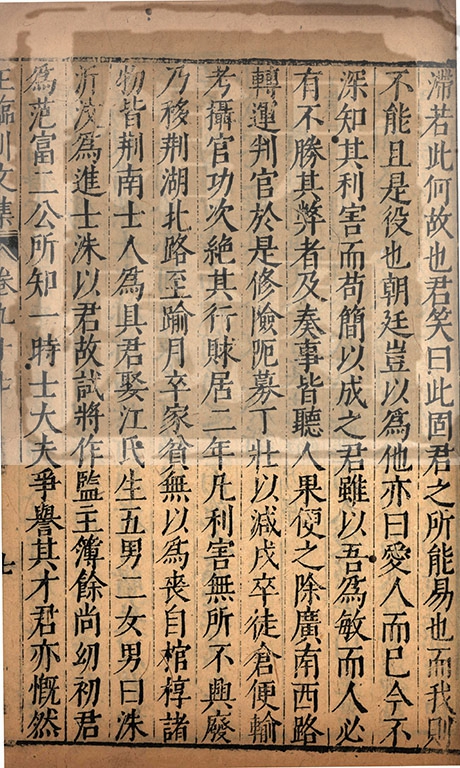 滯若此何故也君笑曰此固君之所能易也而我則
不能且是役也朝廷豈以爲他亦曰愛人而已今不
深知其利害而苟簡以成之君雖以吾爲敏而人必
有不勝其弊者及奏事皆聽人果便之除廣南西路
轉運判官於是修險阨募丁壯以減戍卒徒倉便輸
考攝官功次絶其行賕居二年凡利害無所不興廢
乃移荆湖北路至踰月卒家貧無以爲喪自棺椁諸
物皆荆南士人爲具君娶江氏生五男二女男曰洙
沂茂爲進士洙以君故試將作監主簿餘尚幼初君
爲范富二公所知一時士大夫爭譽其才君亦慨然
王臨川文集 卷九十七 七